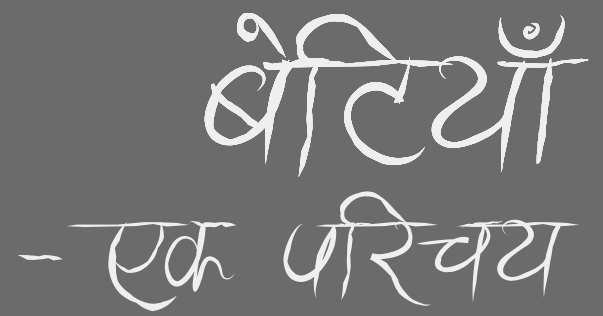 बेटियाँ
- एक परिचय